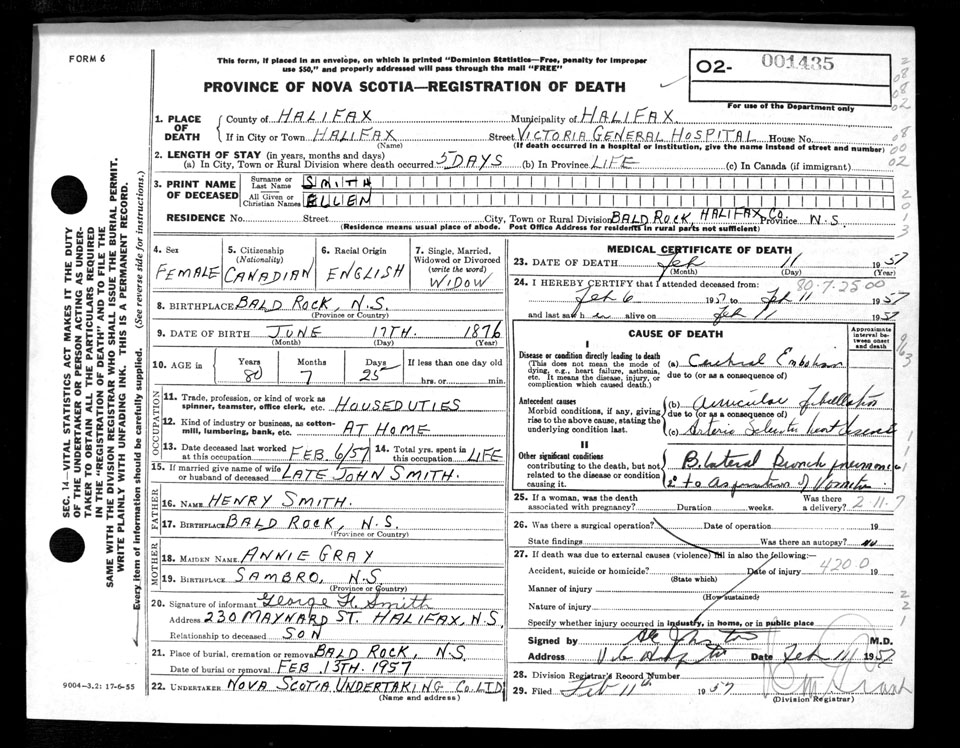 FORM 6
This form, if placed in an envelope, on which is printed "Dominion Statistics—Free, penalty for improper
use $50," and properly addressed will pass through the mail "FREE"
PROVINCE OF NOVA SCOTIA—REGISTRATION OF DEATH
O2- 001435
For use of the Department only
SEC. 14—VITAL STATISTICS ACT MAKES IT THE DUTY
OF THE UNDERTAKER OR PERSON ACTING AS UNDER-
TAKER TO OBTAIN ALL THE PARTICULARS REQUIRED
IN THE "REGISTRATION OF DEATH" AND TO FILE THE
SAME WITH THE DIVISION REGISTRAR WHO SHALL ISSUE THE BURIAL PERMIT.
WRITE PLAINLY WITH UNFADING INK. THIS IS A PERMANENT RECORD.
Every item of information should be carefully supplied. (See reverse side for instructions.)
1. PLACE OF DEATH
County of HALIFAX Municipality of HALIFAX
If in City or Town HALIFAX Street VICTORIA GENERAL HOSPITAL House No.
(Name) (If death occurred in a hospital or institution, give the name instead of street and number)
2. LENGTH OF STAY (in years, months and days)
(a) In City, Town or Rural Division where death occurred 5 DAYS (b) In Province LIFE (c) In Canada (if immigrant)
3. PRINT NAME OF DECEASED
Surname or Last Name SMITH
All Given or Christian Names ELLEN
RESIDENCE No. Street City, Town or Rural Division BALD ROCK, HALIFAX CO. Province N.S.
(Residence means usual place of abode. Post Office Address for residents in rural parts not sufficient)
4. Sex FEMALE
5. Citizenship (Nationality) CANADIAN
6. Racial Origin ENGLISH
7. Single, Married, Widowed or Divorced (write the word) WIDOW
8. BIRTHPLACE BALD ROCK, N.S.
(Province or Country)
9. DATE OF BIRTH JUNE 17TH. 1876
(Month) (Day) (Year)
10. AGE in Years 80 Months 7 Days 25 If less than one day old
hrs. or min.
OCCUPATION
11. Trade, profession, or kind of work as
spinner, teamster, office clerk, etc. HOUSEDUTIES
12. Kind of industry or business, as cotton-
mill, lumbering, bank, etc. AT HOME
13. Date deceased last worked at this occupation FEB. 6/57 14. Total yrs. spent in this occupation LIFE
15. If married give name of wife
or husband of deceased LATE JOHN SMITH.
FATHER
16. NAME HENRY SMITH.
17. BIRTHPLACE BALD ROCK, N.S.
(Province or Country)
MOTHER
18. MAIDEN NAME ANNIE GRAY
19. BIRTHPLACE SAMBRO, N.S.
(Province or Country)
20. Signature of informant George H. Smith
Address 230 MAYNARD ST. HALIFAX, N.S.
Relationship to deceased SON
21. Place of burial, cremation or removal BALD ROCK, N.S.
Date of burial or removal FEB. 13TH. 1957
22. UNDERTAKER NOVA SCOTIA UNDERTAKING CO. LTD
(Name and address)
9004—3.2: 17-6-55
MEDICAL CERTIFICATE OF DEATH
23. DATE OF DEATH Feb 11 1957
(Month) (Day) (Year)
80-7-25 00
24. I HEREBY CERTIFY that I attended deceased from:
Feb 6 1957 to Feb 11 1957
and last saw h er alive on Feb 11 1957
CAUSE OF DEATH
Approximate interval between onset and death
I
Disease or condition directly leading to death
(This does not mean the mode of
dying, e.g., heart failure, asthenia,
etc. It means the disease, injury, or
complication which caused death.)
(a) Cerebral Embolism
due to (or as a consequence of)
Antecedent causes
Morbid conditions, if any, giving
rise to the above cause, stating the
underlying condition last.
(b) Auricular fibrillation
due to (or as a consequence of)
(c) Arterio Sclerotic heart disease
II
Other significant conditions
contributing to the death, but not
related to the disease or condition
causing it.
Bilateral bronch pneumonia
2° to aspiration of Vomitus
25. If a woman, was the death
associated with pregnancy? Duration weeks. Was there a delivery? 2-11-7
26. Was there a surgical operation? Date of operation 19
State findings Was there an autopsy? no
27. If death was due to external causes (violence) fill in also the following:
Accident, suicide or homicide? Date of injury 420.0 19
(State which)
Manner of injury
(How sustained)
Nature of injury
Specify whether injury occurred in industry, in home, or in public place
Signed by Johnston M.D.
Address Date Feb 11 1957
28. Division Registrar's Record Number
29. Filed Feb 11th 1957
(Division Registrar)